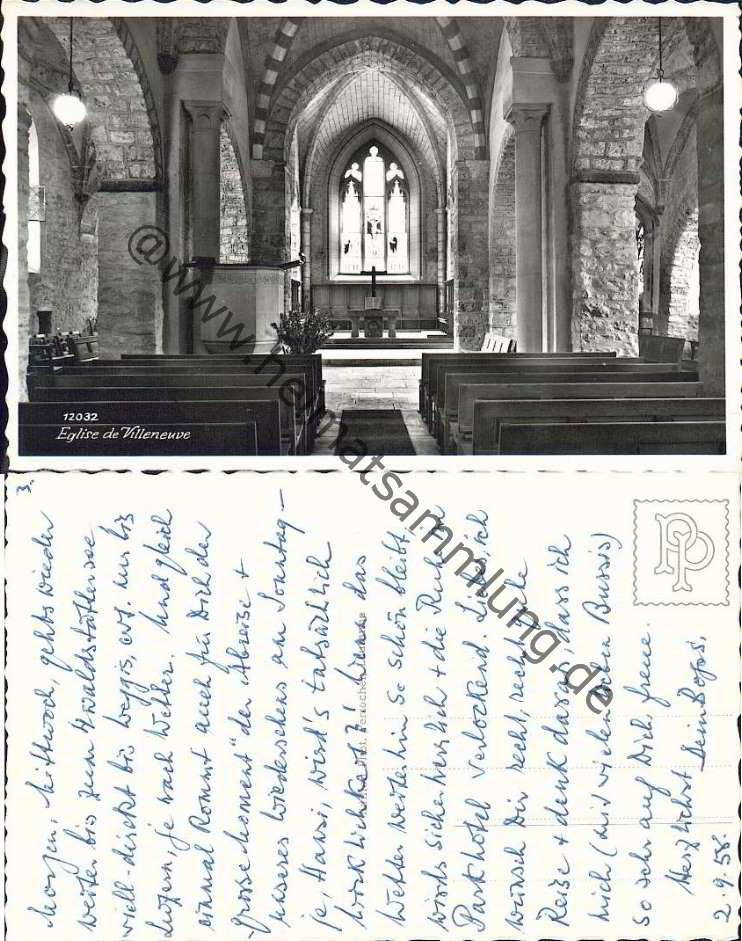 12032
Eglise de Villeneuve
@www.heimatsammlung.de
3.
Morgen, Mittwoch, gehts wieder
weiter bis zum 4waldstättersee
viell. direkt bis Weggis, evt. nur bis
Luzern, je nach Wetter. Und gleich
einmal kommt auch für Dich der
"grosse Moment" der Abreise +
unseres Wiedersehens am Sonntag –
ja, Hansi, wird's tatsächlich
Wirklichkeit?! Wenn das
Wetter weiterhin so schön bleibt,
wirds sicher herrlich + die Ruhe im
Parkhotel verlockend. Lieb, ich
wünsch Dir recht, recht gute
Reise + denk daran, dass ich
mich (mit vielen lieben Bussis)
so sehr auf Dich freue.
Herzlichst Dein
2.9.58.
Perrochet